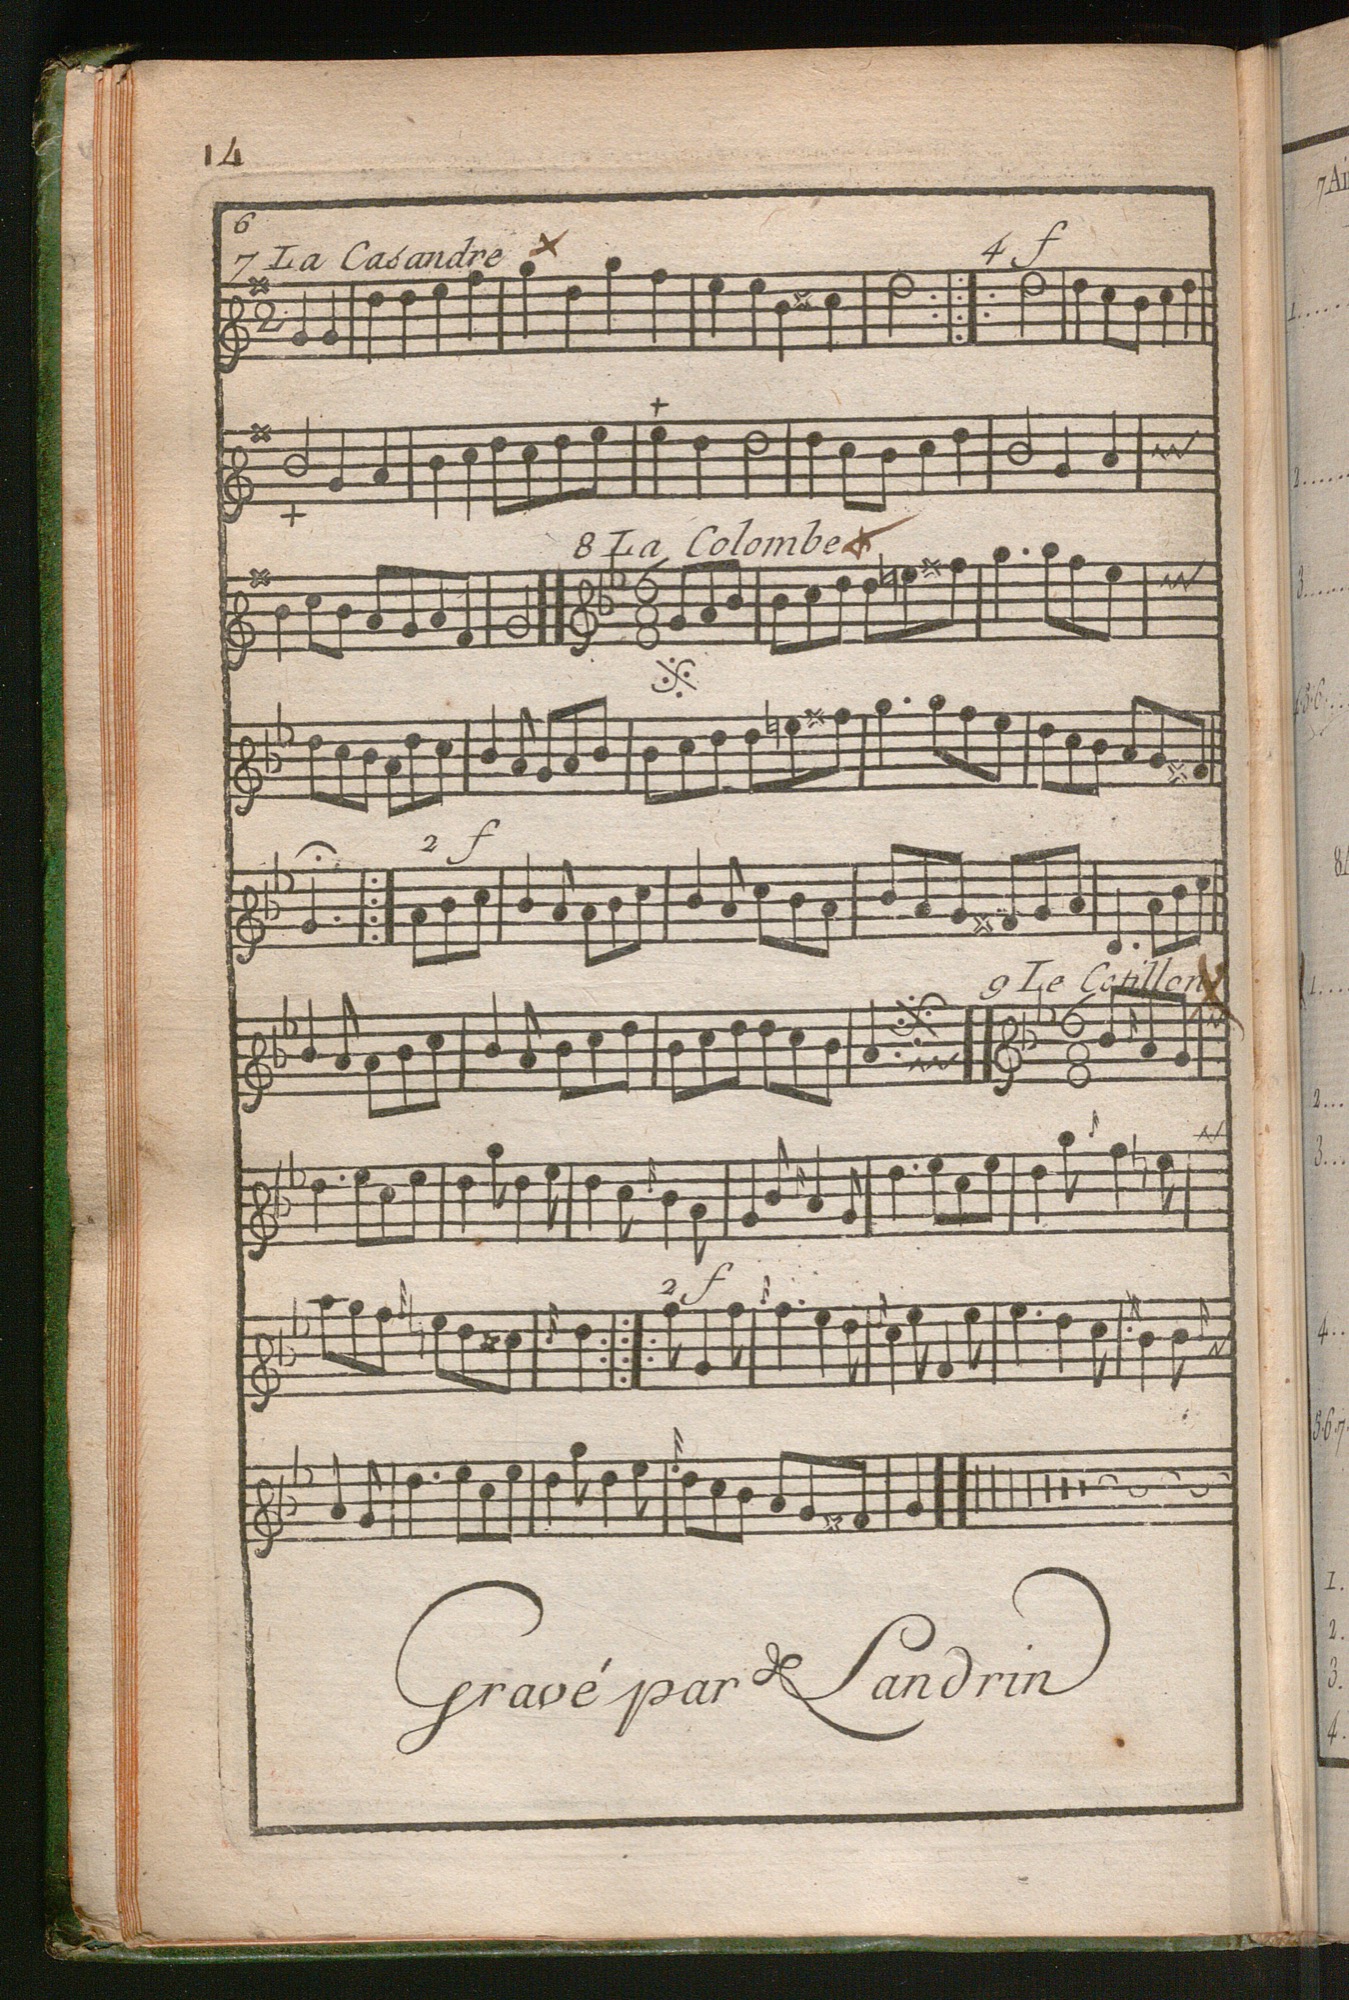 14
6
7 La Casandre
4 f
8 La Colombe
2 f
9 Le Cotillon
2 f
Gravé par Landrin
7 Ai
1.....
2....
3.....
4.5.6...
8A
1....
2...
3...
4..
5.6.7.
1.
2.
3.
4.